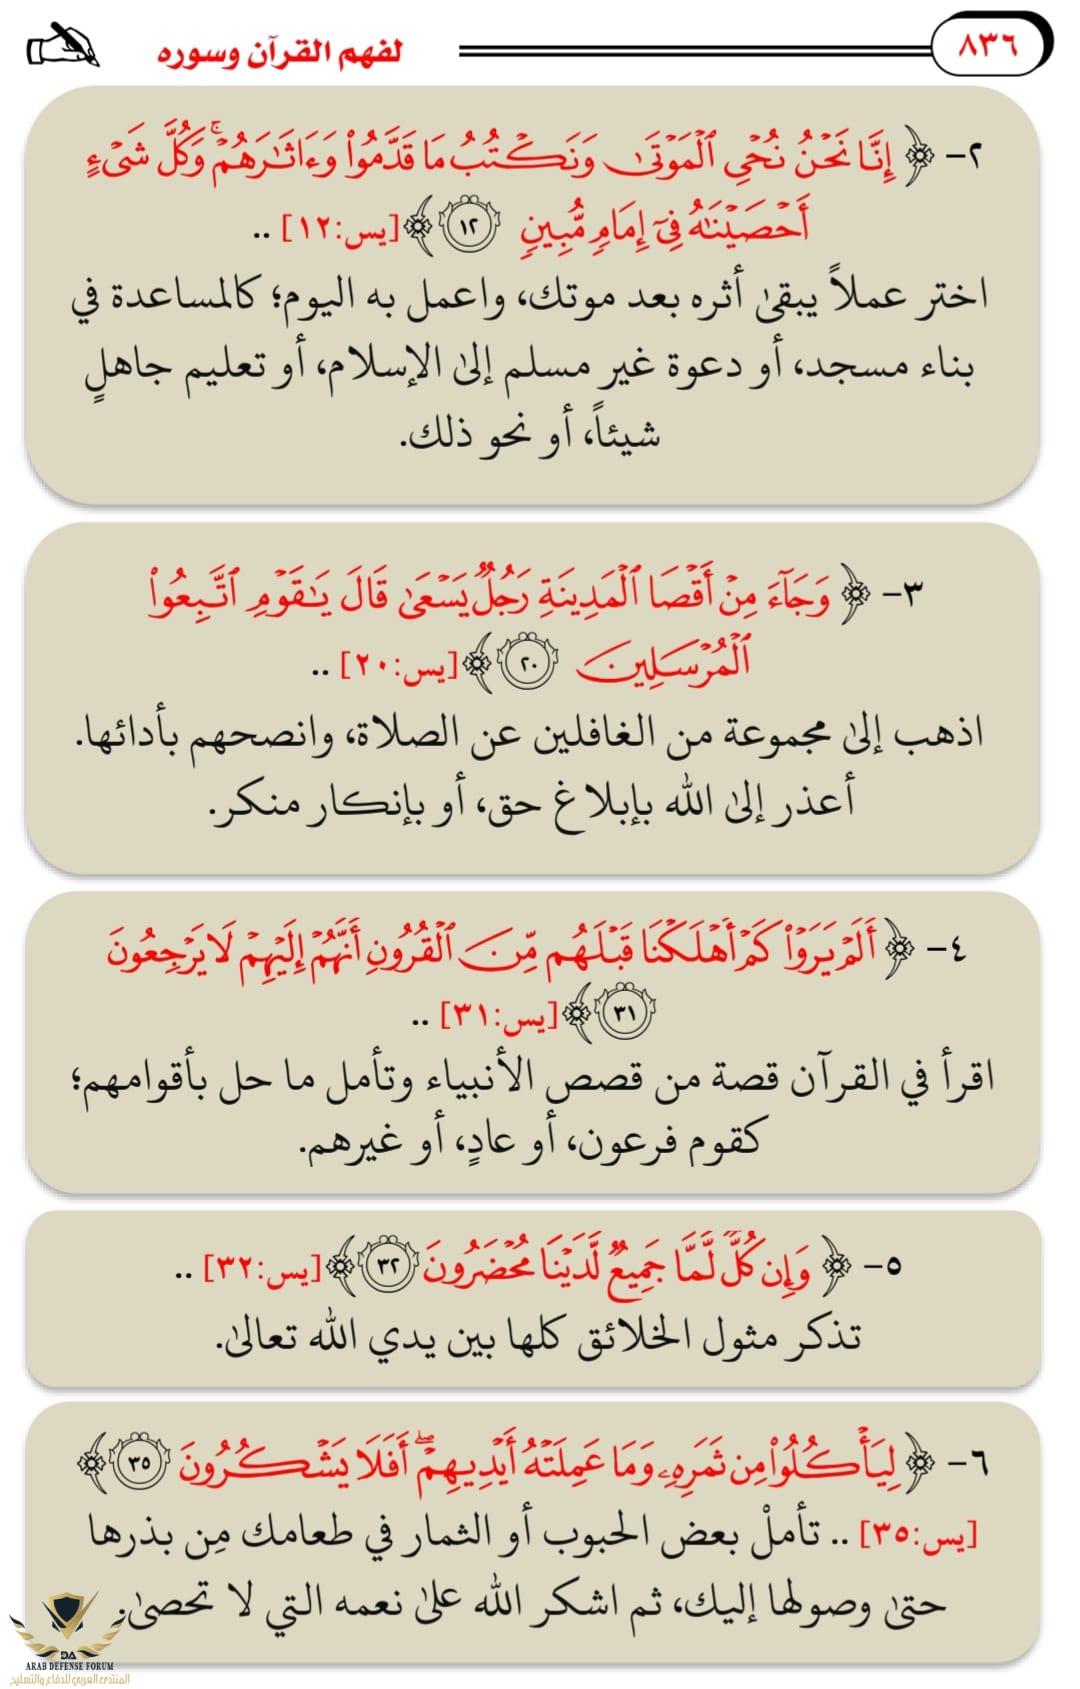 ٨٣٦
لفهم القرآن وسوره
٢- ﴿ إِنَّا نَحْنُ نُحْيِ ٱلْمَوْتَىٰ وَنَكْتُبُ مَا قَدَّمُوا۟ وَءَاثَٰرَهُمْ ۚ وَكُلَّ شَىْءٍ
أَحْصَيْنَٰهُ فِىٓ إِمَامٍ مُّبِينٍ ١٢ ﴾ [يس:١٢] ..
اختر عملاً يبقىٰ أثره بعد موتك، واعمل به اليوم؛ كالمساعدة في
بناء مسجد، أو دعوة غير مسلم إلىٰ الإسلام، أو تعليم جاهلٍ
شيئاً، أو نحو ذلك.
٣- ﴿ وَجَآءَ مِنْ أَقْصَا ٱلْمَدِينَةِ رَجُلٌ يَسْعَىٰ قَالَ يَٰقَوْمِ ٱتَّبِعُوا۟
ٱلْمُرْسَلِينَ ٢٠ ﴾ [يس:٢٠] ..
اذهب إلىٰ مجموعة من الغافلين عن الصلاة، وانصحهم بأدائها.
أعذر إلىٰ الله بإبلاغ حق، أو بإنكار منكر.
٤- ﴿ أَلَمْ يَرَوْا۟ كَمْ أَهْلَكْنَا قَبْلَهُم مِّنَ ٱلْقُرُونِ أَنَّهُمْ إِلَيْهِمْ لَا يَرْجِعُونَ
٣١ ﴾ [يس:٣١] ..
اقرأ في القرآن قصة من قصص الأنبياء وتأمل ما حل بأقوامهم؛
كقوم فرعون، أو عادٍ، أو غيرهم.
٥- ﴿ وَإِن كُلٌّ لَّمَّا جَمِيعٌ لَّدَيْنَا مُحْضَرُونَ ٣٢ ﴾ [يس:٣٢] ..
تذكر مثول الخلائق كلها بين يدي الله تعالىٰ.
٦- ﴿ لِيَأْكُلُوا۟ مِن ثَمَرِهِۦ وَمَا عَمِلَتْهُ أَيْدِيهِمْ ۖ أَفَلَا يَشْكُرُونَ ٣٥ ﴾
[يس:٣٥] .. تأملْ بعض الحبوب أو الثمار في طعامك مِن بذرها
حتىٰ وصولها إليك، ثم اشكر الله علىٰ نعمه التي لا تحصىٰ.
DA
ARAB DEFENSE FORUM
المنتدى العربي للدفاع والتسليح